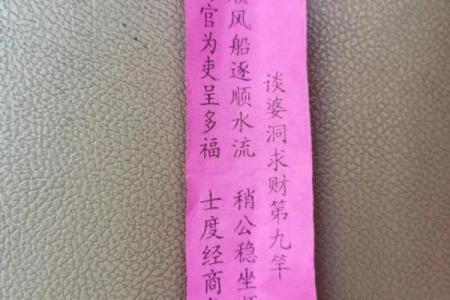 谈婆洞求财第九竿
风船逐顺水流 稍公稳坐
官为吏呈多福 士度经商